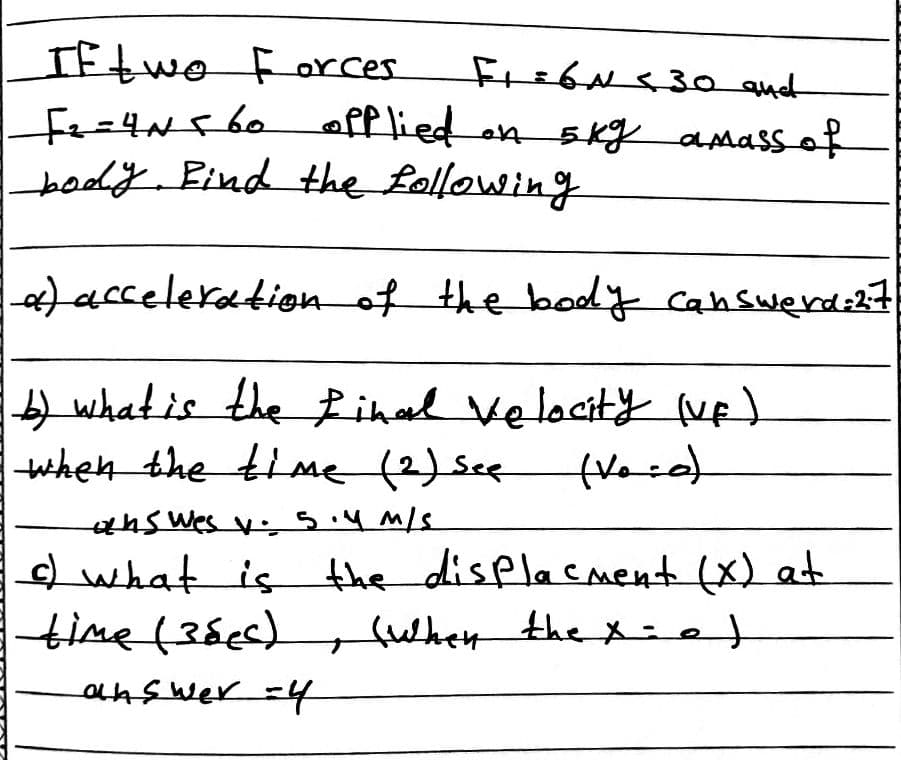 IF two Forces F1 = 6N < 30 and
F2 = 4N < 60 applied on 5kg a mass of
body. Find the following
a) acceleration of the body (answer a=2.7
b) what is the final velocity (VF)
when the time (2) see (V0 = 0)
answes v= 5.4 m/s
c) what is the displacment (x) at
time (3sec) , (when the x = 0)
answer = 4